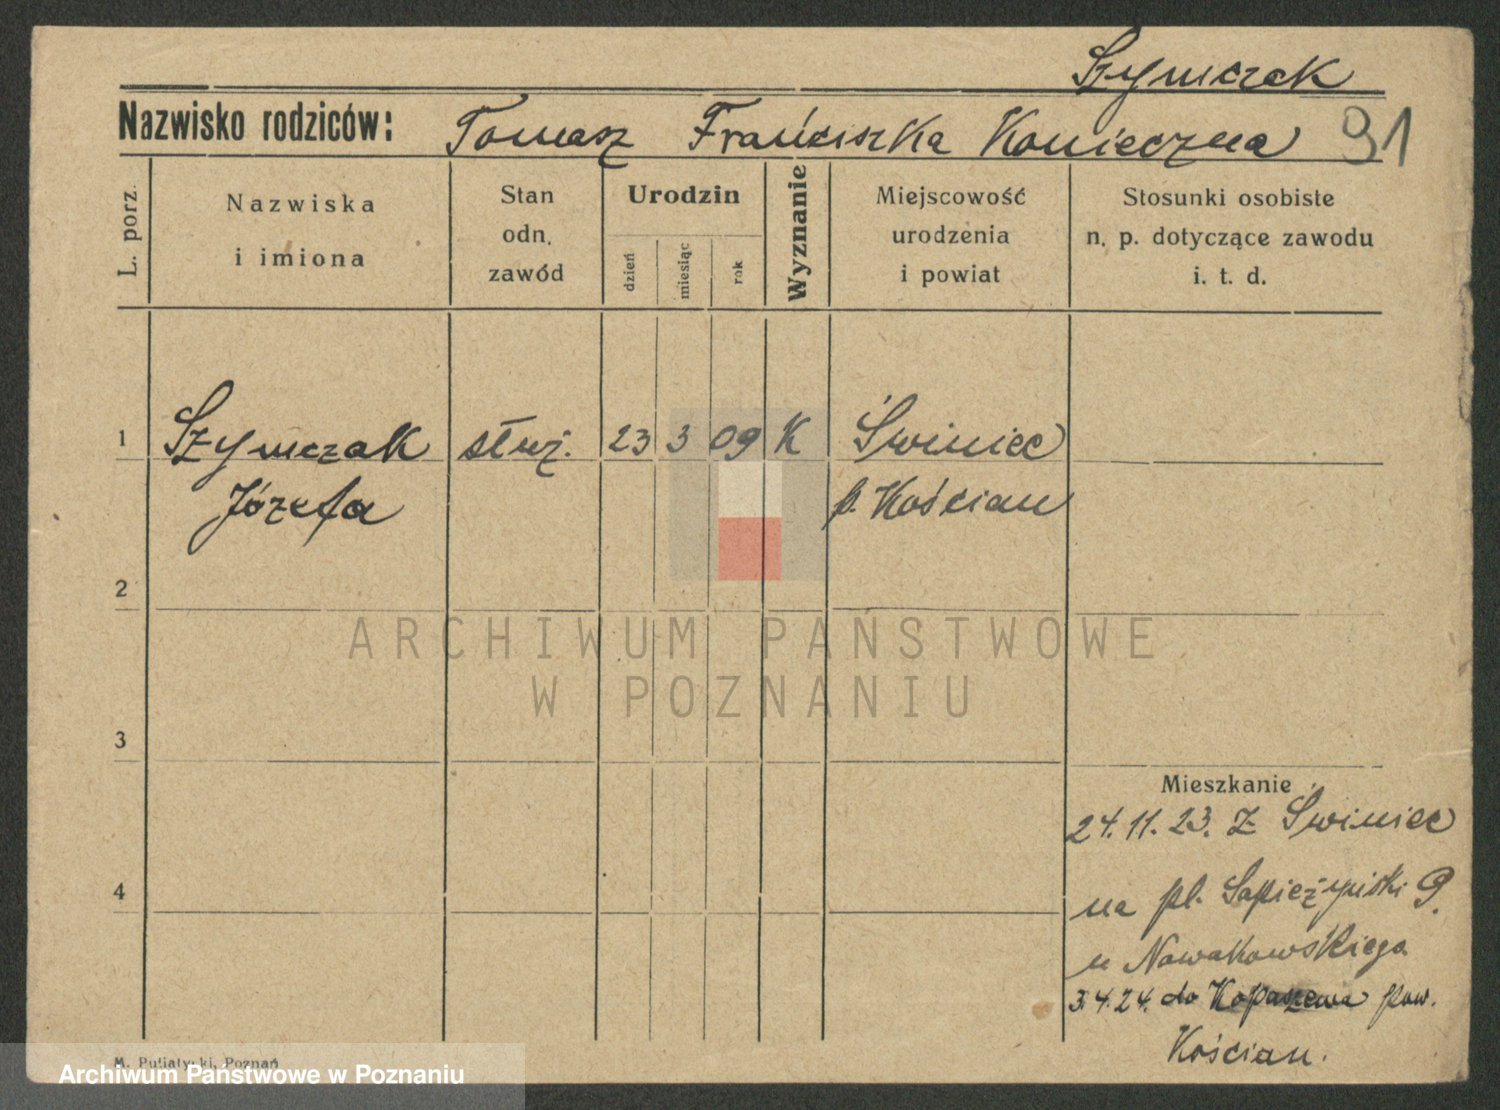 Szymczak
Nazwisko rodziców: Tomasz Franciszka Konieczna 91
L. porz.
Nazwiska i imiona
Stan odn. zawód
Urodzin
dzień miesiąc rok
Wyznanie
Miejscowość urodzenia i powiat
Stosunki osobiste n. p. dotyczące zawodu i. t. d.
1 Szymczak służ. 23 3 09 K Świniec
Józefa p. Kościan
2
ARCHIWUM PAŃSTWOWE
W POZNANIU
3
Mieszkanie
24.11.23. z Świniec
4
na pl. Sapieżyński 9.
u Nowakowskiego
3.4.24. do Kopaszewa pow.
Kościan.
M. Putiatycki, Poznań
Archiwum Państwowe w Poznaniu